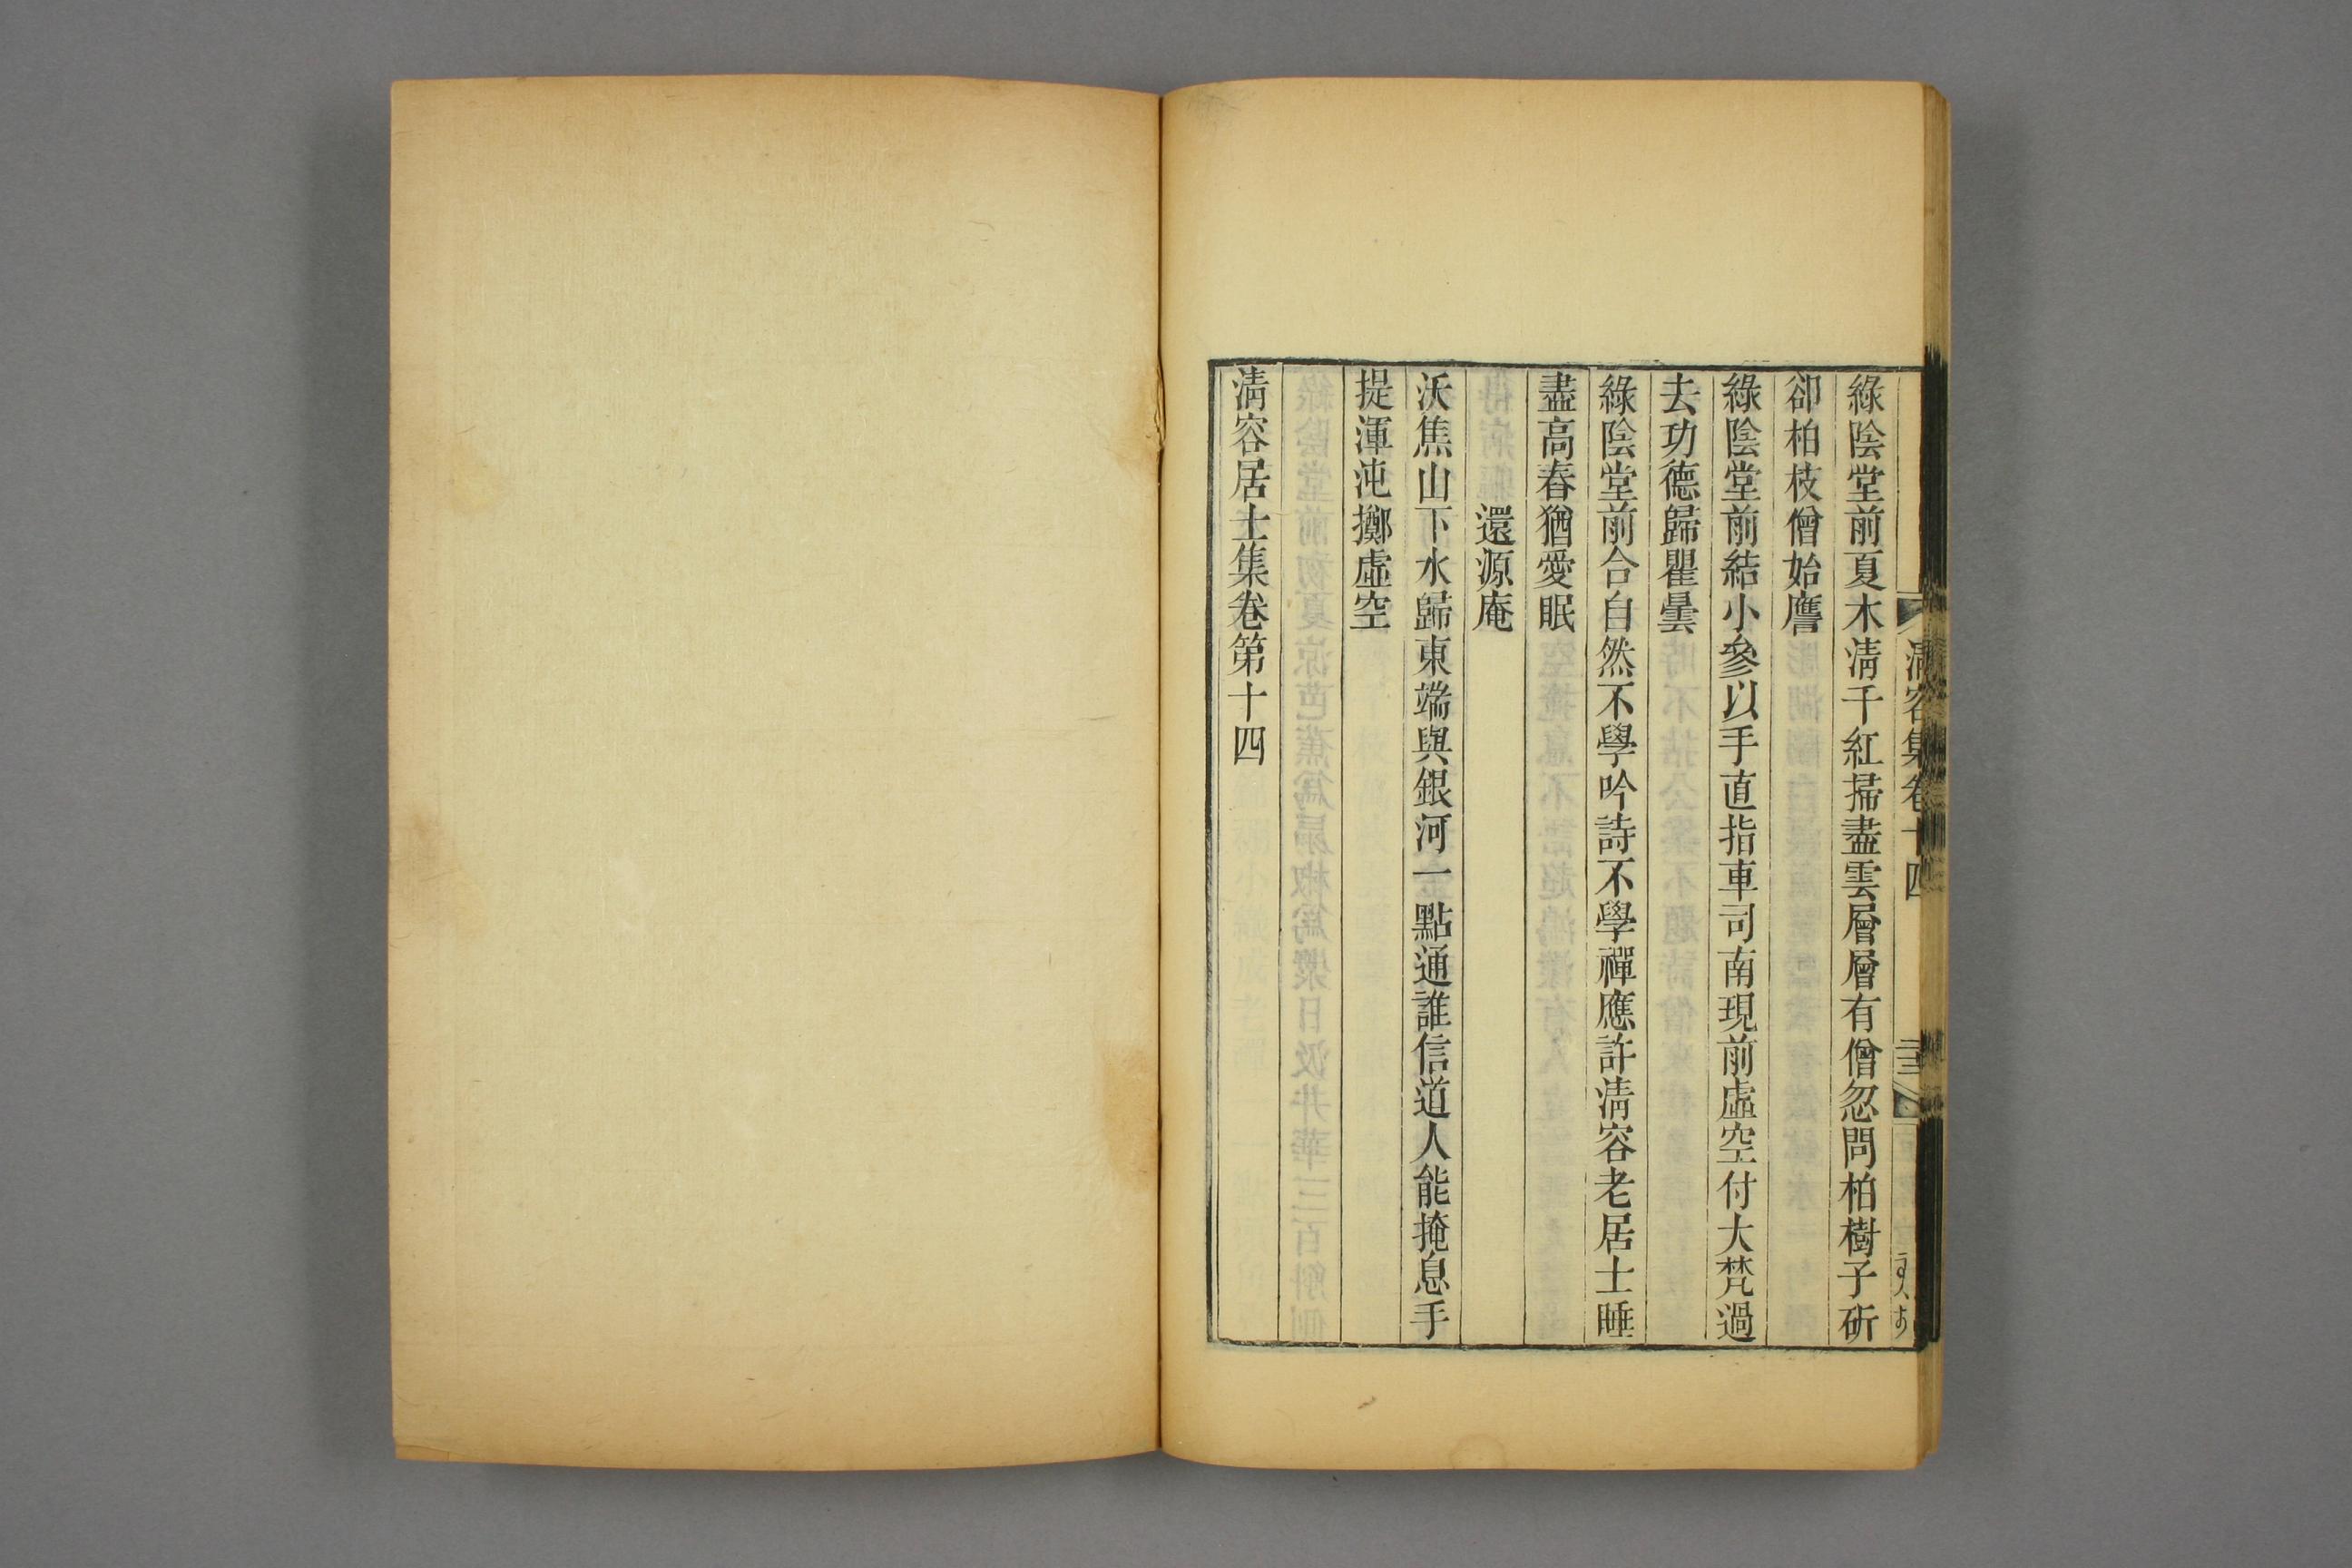 清容集卷十四
綠陰堂前夏木清千紅掃盡雲層層有僧忽問柏樹子斫
卻柏枝僧始譍
綠陰堂前結小參以手直指車司南現前虛空付大梵過
去功德歸瞿曇
綠陰堂前合自然不學吟詩不學禪應許清容老居士睡
盡高舂猶愛眠
還源庵
沃焦山下水歸東端與銀河一點通誰信道人能掩息手
提渾沌擲虛空
清容居士集卷第十四